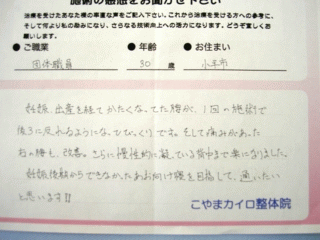 施術の感想をお聞かせ下さい
治療を受けたあなた様の率直な声をご記入下さい。これから治療を受ける方への参考に、
そして何より私の励みになり、さらなる技術向上への活力になります。どうぞ宜しくお
願いします。
●ご職業 ●年齢 ●お住まい
団体職員 30 歳 小平市
妊娠、出産を経てかたくなってた腰が、1回の施術で
後ろに反れるようになってびっくりです。そして痛みがあった
右の腰も改善。さらに慢性的に凝っている背中まで楽になりました。
妊娠後期からできなかったあおむけ寝を目指して、通いたい
と思います!!
こやまカイロ整体院